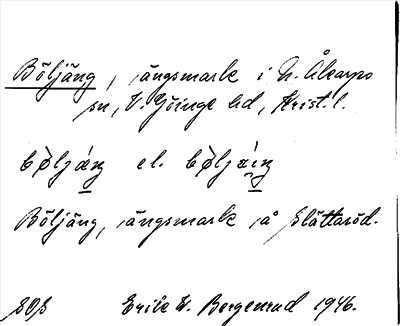 Böljäng, ängsmark i N. Åkarps
sn, V. Göinge hd, Krist. l.
bø̀ljæ̀ŋ el. bø̀ljæ̀iŋ
Böljäng, ängsmark på Slättaröd.
SOS Eric W. Bergenrud 1946.